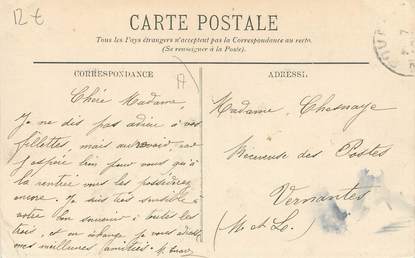 12 €
CARTE POSTALE
Tous les Pays étrangers n'acceptent pas la Correspondance au recto.
(Se renseigner à la Poste).
CORRESPONDANCE
ADRESSE
Chère Madame,
Je ne dis pas adieu à vos
fillettes, mais au revoir, car
j'espère bien pour vous qu'à
la rentrée vous les possèderez
encore. Je suis très sensible à
votre bon souvenir à toutes les
trois, et en échange je vous adresse
mes meilleures amitiés. M.
Madame Chesnaye
Receveuse des Postes
Vernantes
(M et Le)